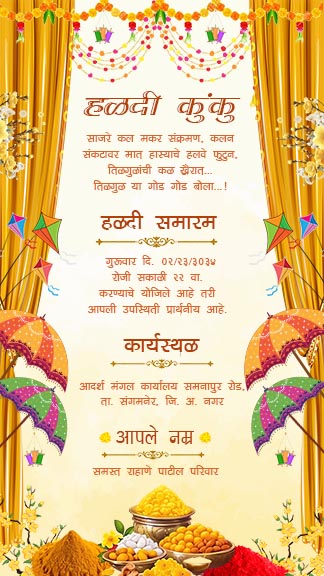 हळदी कुंकु
साजरे कल मकर संक्रमण, कलन
संकटावर मात् हास्याचे हलवे फूटुन,
तिळगुळांची कळ खैरात...
तिळगुळ या गोड गोड बोला...!
हळदी समारम
गुरूवार दि. ०२/२३/३०३४
रोजी सकाळी २२ वा.
करण्याचे योजिले आहे तरी
आपली उपस्थिती प्रार्थनीय आहे.
कार्यस्थळ
आदर्श मंगल कार्यालय समनापुर रोड,
ता. संगमनेर, जि. अ. नगर
आपले नम्र
समस्त राहाणे पाटील परिवार